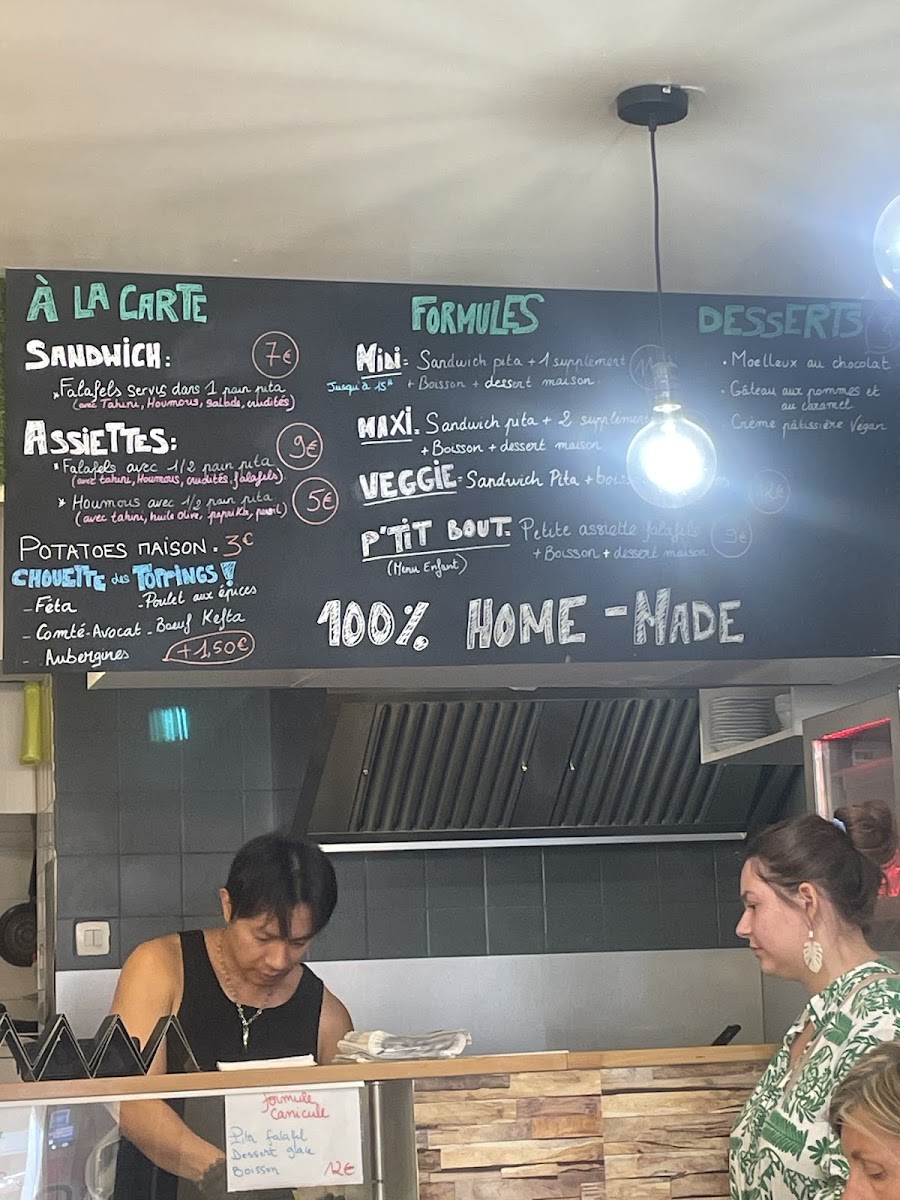 À LA CARTE
SANDWICH: 7€
*Falafels servis dans 1 pain pita
(avec Tahini, Houmous, salade, crudités)
ASSIETTES: 9€
*Falafels avec 1/2 pain pita
(avec tahini, Houmous, crudités, falafels)
* Houmous avec 1/2 pain pita 5€
(avec tahini, huile olive, paprika, persil)
POTATOES MAISON. 3€
CHOUETTE des TOPPINGS!
- Féta
- Poulet aux épices
- Comté-Avocat
- Bœuf Kefta
- Aubergines
+1,50€
FORMULES
Mini: Sandwich pita + 1 supplément
Jusqu'à 15h + Boisson + dessert maison
MAXI. Sandwich pita + 2 supplément
+ Boisson + dessert maison
VEGGIE: Sandwich Pita +
P'TIT BOUT: Petite assiette falafels 9€
+ Boisson + dessert maison
(Menu Enfant)
100% HOME-MADE
DESSERTS
. Moelleux au chocolat
. Gâteau aux pommes et
au caramel
. Crème pâtissière Végan
formule
canicule
Pita falafel
Dessert glacé
Boisson 12€